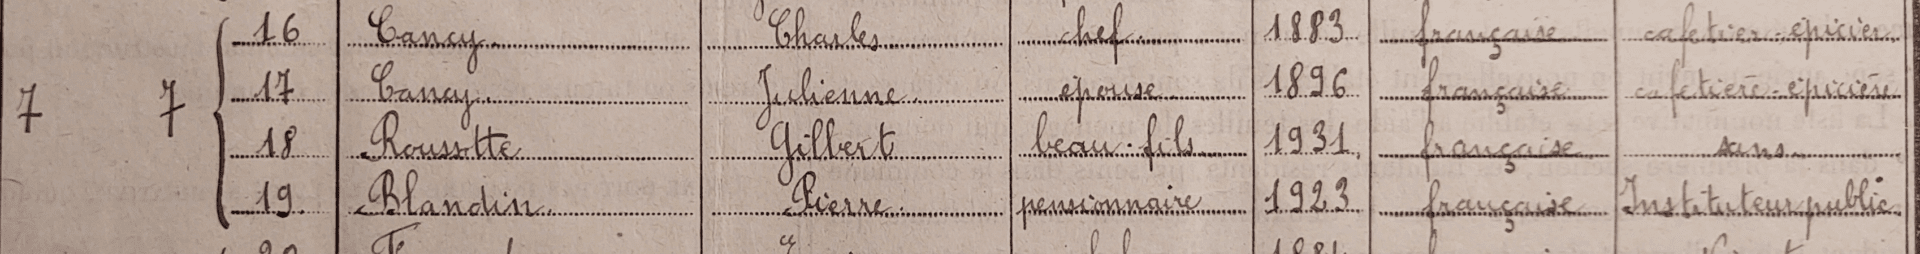 16 Cancy Charles chef 1883 française cafetier-épicier
7 7 17 Cancy Julienne épouse 1896 française cafetière-épicière
18 Roussotte Gilbert beau-fils 1931 française sans
19 Blandin Pierre pensionnaire 1923 française Instituteur public